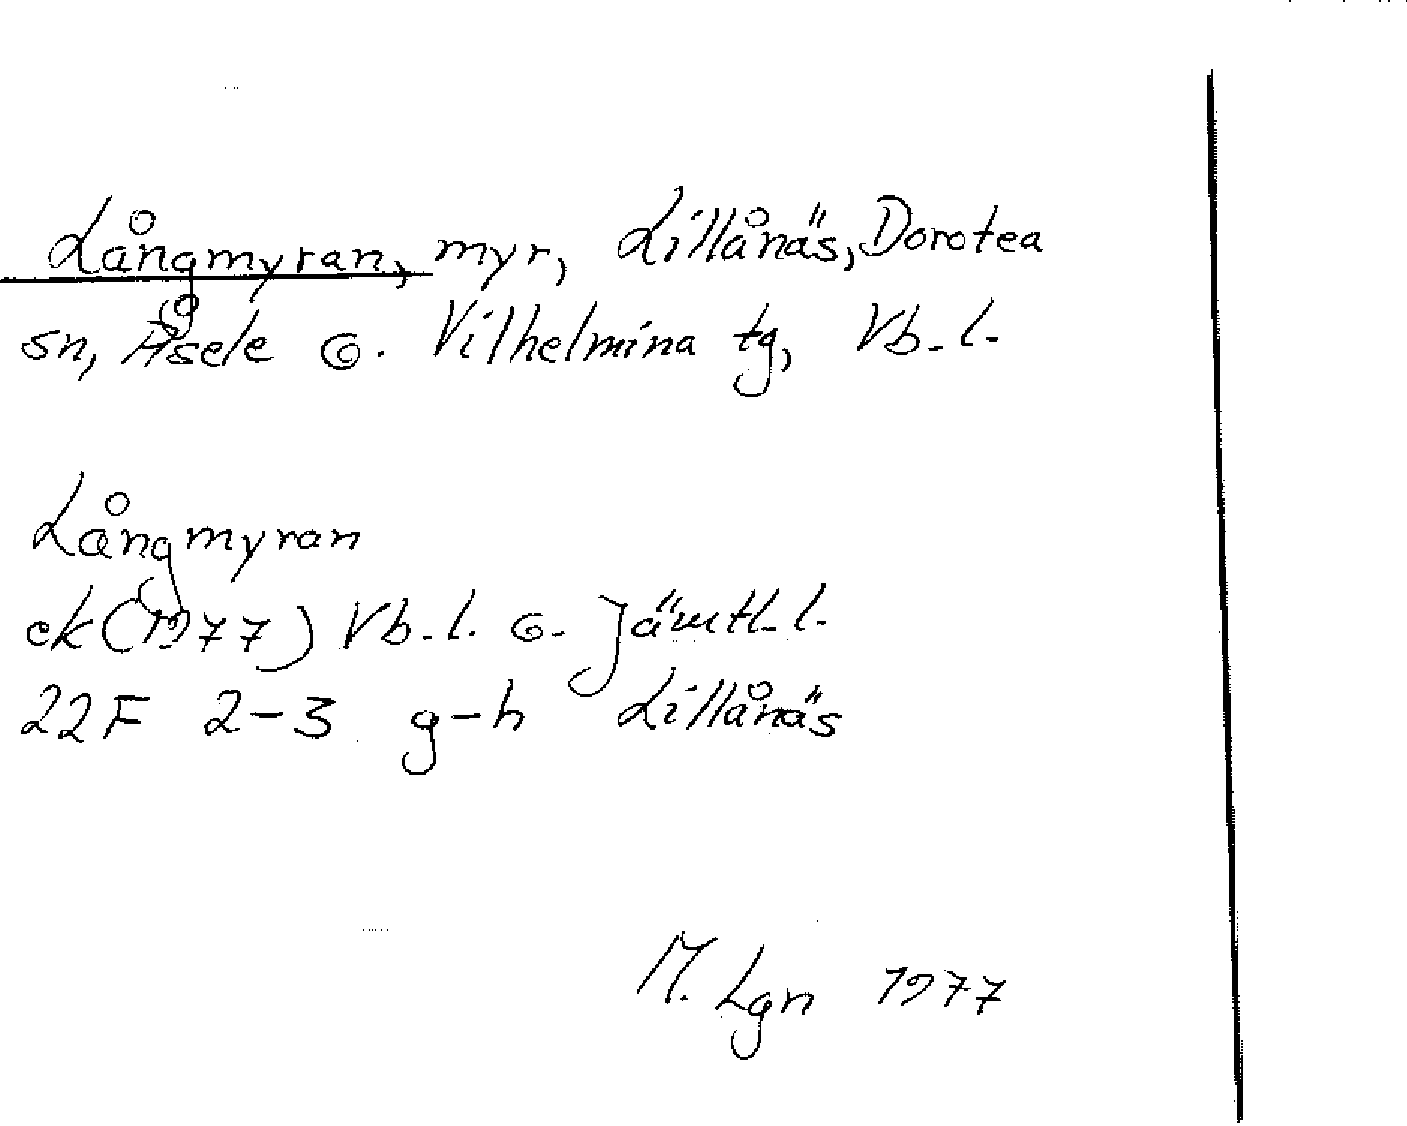 Långmyran, myr, Lillånäs, Dorotea
sn, Åsele o. Vilhelmina tg, Vb. l.
Långmyran
ek (1977) Vb. l. o. Jämtl. l.
22F 2-3 g-h Lillånäs
M. Lgn 1977